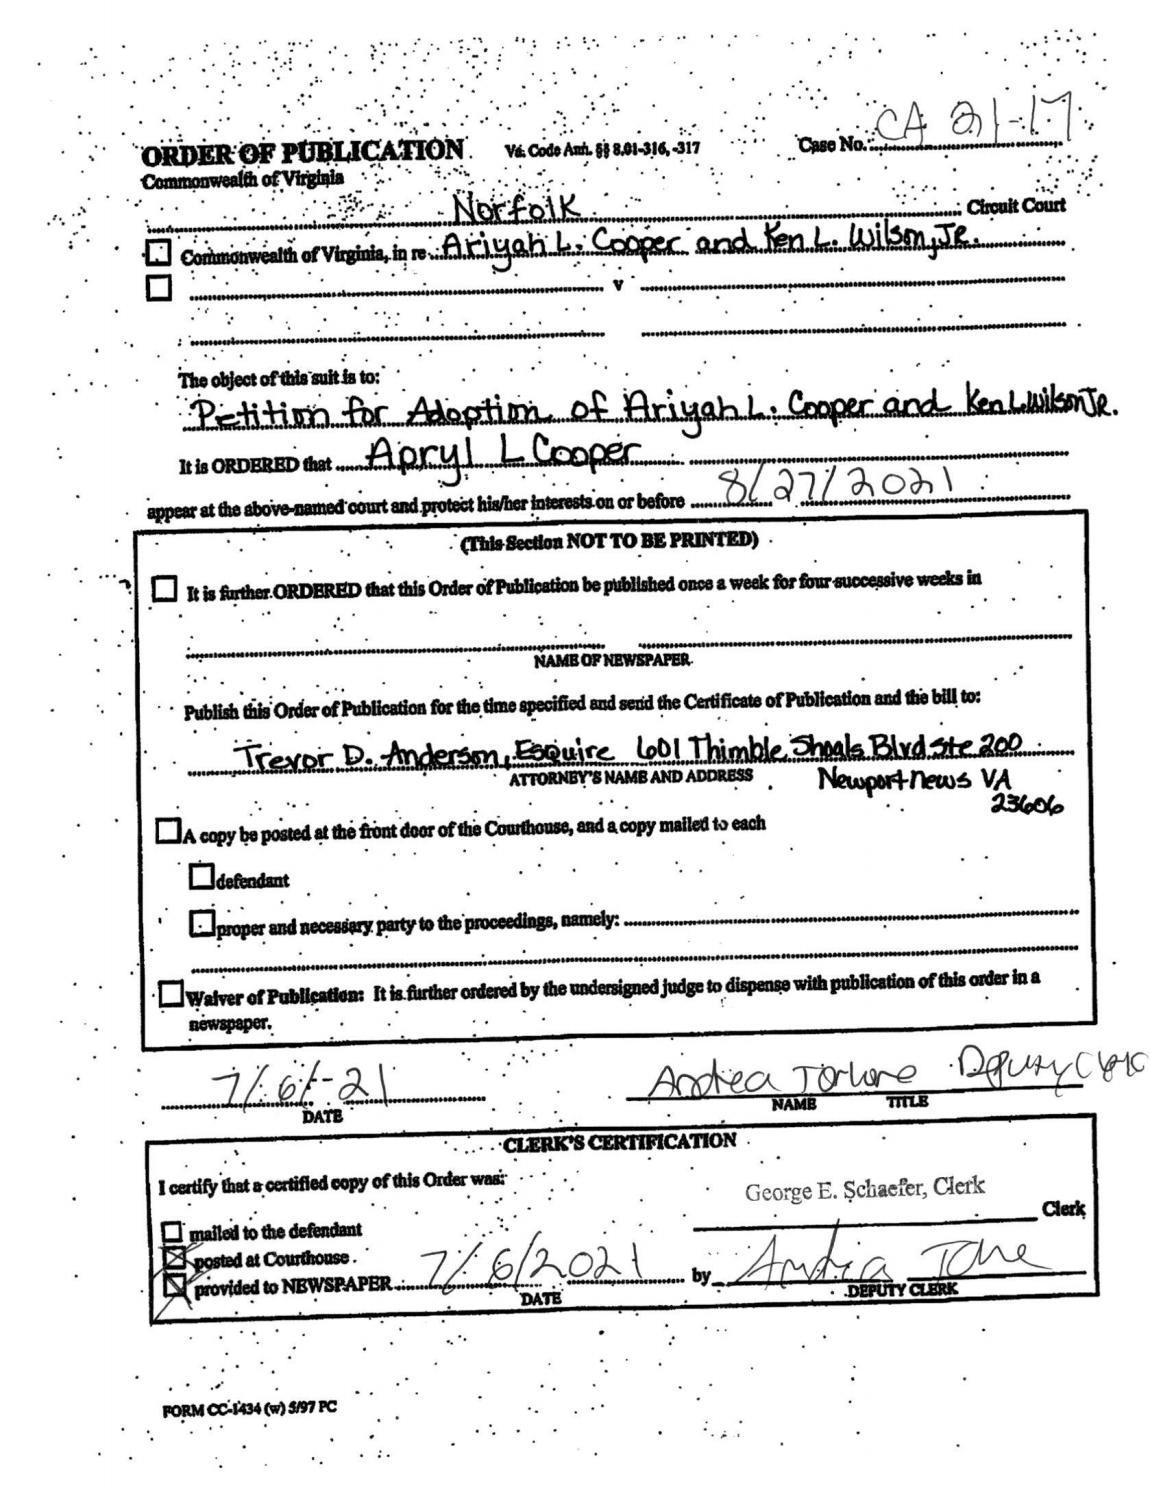 ORDER OF PUBLICATION Va. Code Ann. §§ 8.01-316, -317 Case No. CA 21-17
Commonwealth of Virginia
Norfolk Circuit Court
Commonwealth of Virginia, in re Ariyah L. Cooper and Ken L. Wilson, JR.
v
The object of this suit is to:
Petition for Adoption of Ariyah L. Cooper and Ken L. Wilson JR.
It is ORDERED that Apryl L Cooper
appear at the above-named court and protect his/her interests on or before 8/27/2021
(This Section NOT TO BE PRINTED)
It is further ORDERED that this Order of Publication be published once a week for four successive weeks in
NAME OF NEWSPAPER
Publish this Order of Publication for the time specified and send the Certificate of Publication and the bill to:
Trevor D. Anderson, Esquire 601 Thimble Shoals Blvd Ste 200
ATTORNEY'S NAME AND ADDRESS Newport News VA
23606
A copy be posted at the front door of the Courthouse, and a copy mailed to each
defendant
proper and necessary party to the proceedings, namely:
Waiver of Publication: It is further ordered by the undersigned judge to dispense with publication of this order in a
newspaper.
7/6/-21 Andrea Deputy Clerk
DATE NAME TITLE
CLERK'S CERTIFICATION
I certify that a certified copy of this Order was:
George E. Schaefer, Clerk
Clerk
mailed to the defendant
posted at Courthouse.
provided to NEWSPAPER 7/6/2021 by
DATE DEPUTY CLERK
FORM CC-1434 (w) 5/97 PC